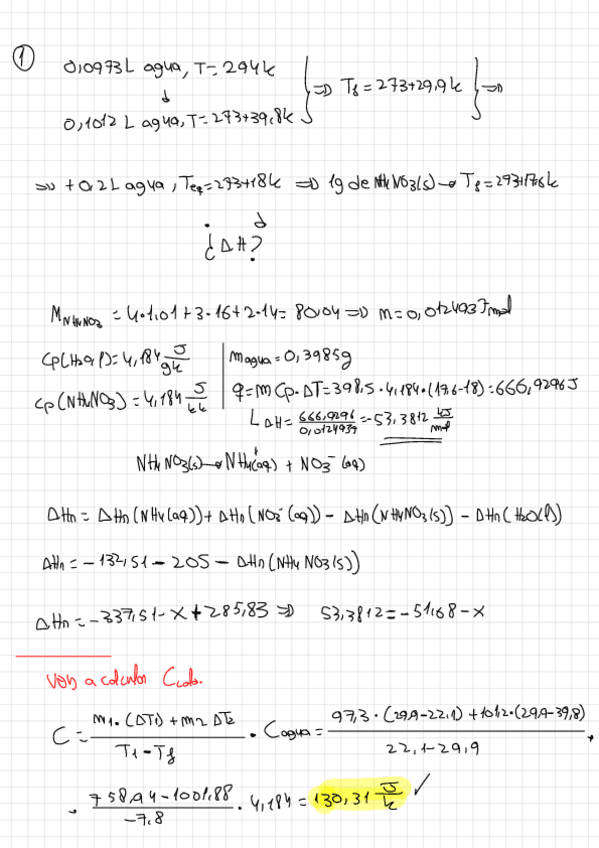 ①
0,0973L agua, T=294k
↓
0,1012 L agua, T=273+39,8k
} ⇒ Tf=273+29,9k } ⇒
⇒ +0,2L agua, Teq=293+18k ⇒ 1g de NH4NO3(s) → Tf=293+17,6k
↓
¿ΔH?
M NH4NO3 = 4·1,01+3·16+2·14= 80,04 ⇒ m=0,0124937mol
Cp(H2O,l)=4,184 J/gk
magua=0,3985g
Cp(NH4NO3)=4,184 J/kk
q=m Cp·ΔT=398,5·4,184·(17,6-18)=666,9296J
↳ ΔH= 666,9296/0,0124937 =-53,3812 kJ/mol
NH4NO3(s)→NH4+(aq) + NO3-(aq)
ΔHn= ΔHn(NH4(aq))+ΔHn(NO3-(aq))- ΔHn(NH4NO3(s))-ΔHn(H2O(l))
ΔHn=-132,51-205-ΔHn(NH4NO3(s))
ΔHn=-337,51-X+285,83 ⇒ 53,3812=-51,68-X
Voy a calcular Ccalo.
C= m1·(ΔT1)+m2 ΔT2 / T1-Tf · Cagua= 97,3·(29,9-22,1)+101,2·(29,9-39,8) / 22,1-29,9 ·
· 758,94-1001,88 / -7,8 · 4,184=130,31 J/k ✓